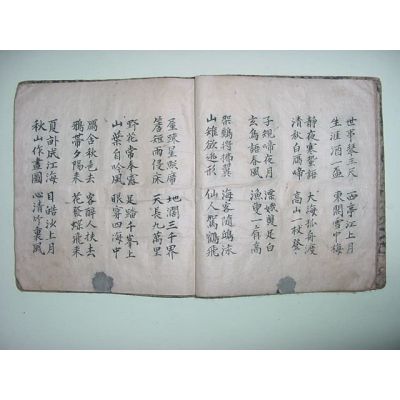 世事琴三尺 西亭江上月
生涯酒一盃 東閣雪中梅
靜夜寒蛩語 大海孤舟渡
清秋白鴈啼 高山一杖登
子規啼夜月 漂娥雙足白
玄鳥語春風 漁叟一肩高
鶴得 翼 海客隨鷗泳
山雉欲逃形 仙人駕鶴飛
屋疎星照席 地濶三千界
簷短雨侵床 天長九萬里
野花常奉露 足踏千峯上
山葉自吟風 眼穿四海中
鴈含秋色去 客醉人扶去
鴉帶夕陽來 花發蝶飛來
夏 成江海 目皓 上月
秋山作畫圖 心清竹裏風